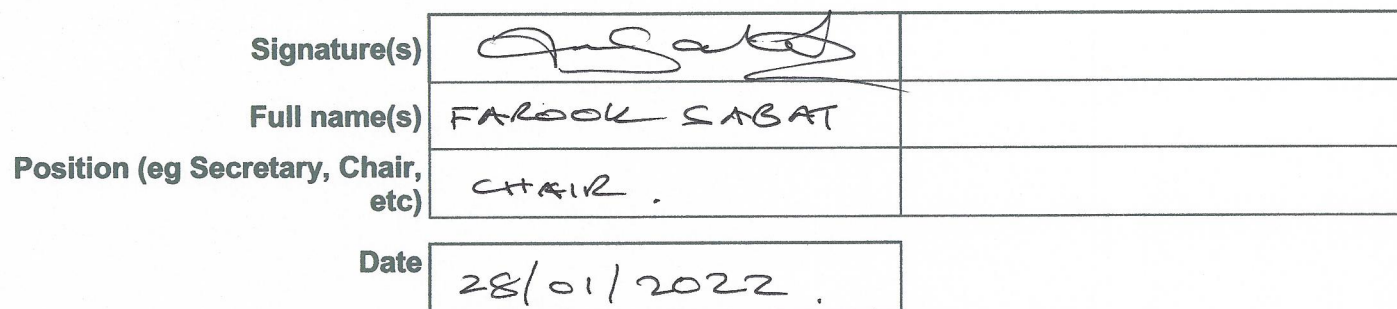 Signature(s)
Full name(s) FAROOK SABAT
Position (eg Secretary, Chair,
etc) CHAIR.
Date 28/01/2022.